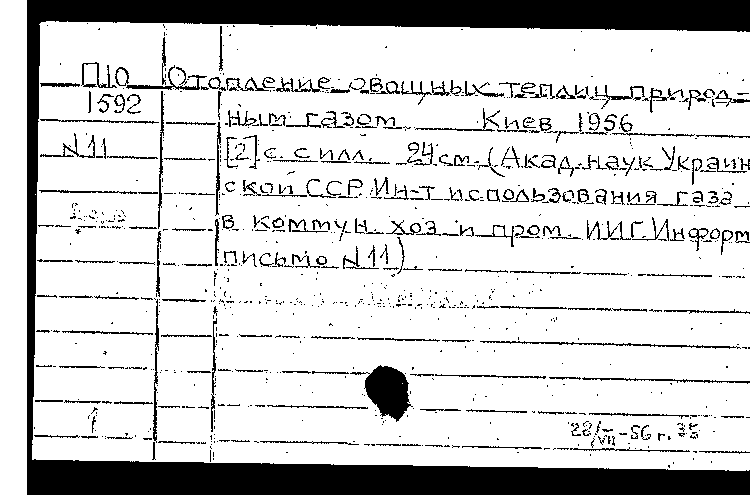 П10 Отопление овощных теплиц природ=
1592 ным газом. Киев, 1956
N11 [2] с. с илл. 24 см. (Акад. наук Украин
ской ССР. Ин-т использования газа
в коммун. хоз. и пром. ИИГ. Информ
письмо N11).
1
28/VII-56 г.